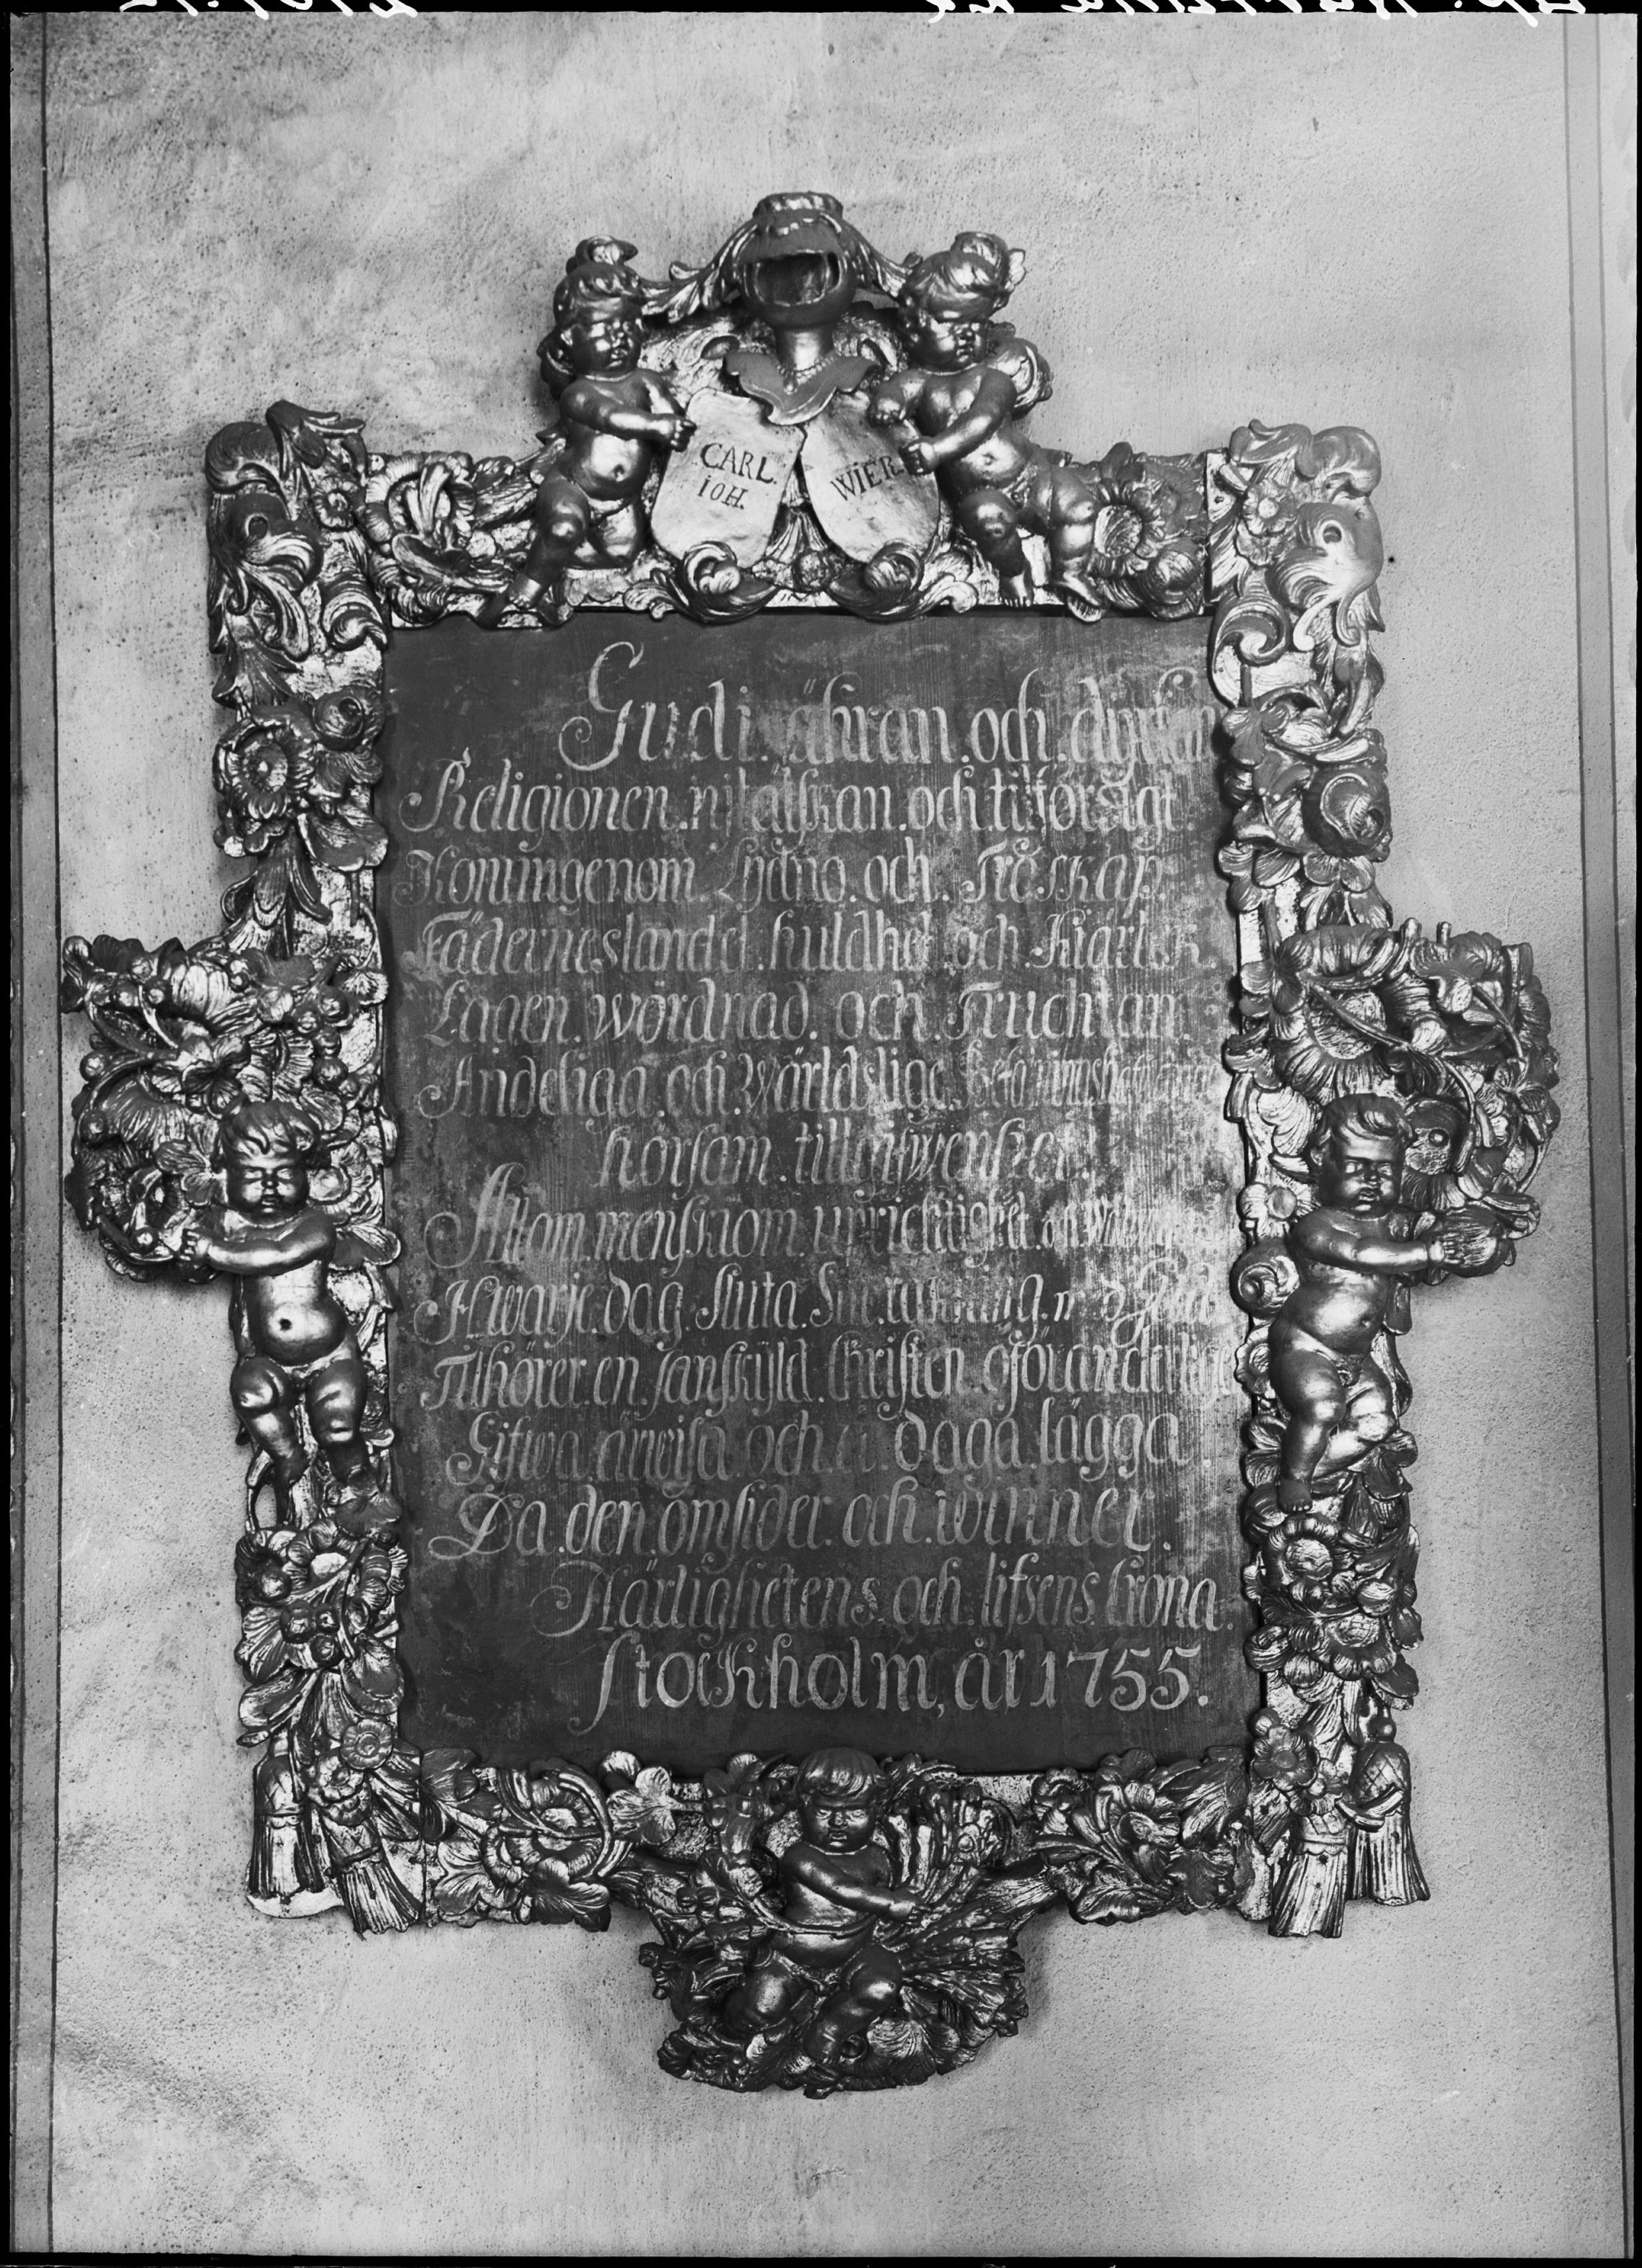 CARL.
IOH.
WIER
Gudi ähran och dyrkan
Religionen nit älskan och tilförsigt.
Konungenom Lydno och Troskap.
Fäderneslandet huldhet och Kiärlek.
Lagen wördnad och Fruchtan.
Andeliga och Wärldslige
hörsam
Allom menskiom uprichtighet och
Hwarje dag sluta Sin räkning
Tilhörer en sanskyld Christen oföränderlige
Gifwa och å daga lägga.
Då den omsider och winner.
Härlighetens och lifsens krona.
Stockholm, år 1755.